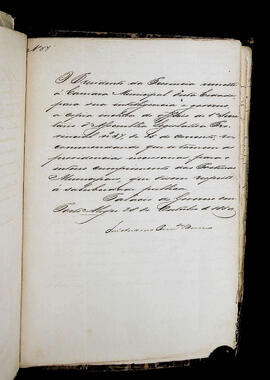 O Presidente da Provincia remette
á Camara Municipal desta Cidade
para sua intelligencia e governo
a copia do officio do 1º Secre
tario d'Assemblea Legislativa Pro
vincial nº 27, de 20 do corrente, re
commendando que se tomem as
providencias necessarias para
inteiro cumprimento das Posturas
Municipaes, que dizem respeito
á salubridade publica.
Palacio do Governo em
Porto Alegre 28 de Outubro de